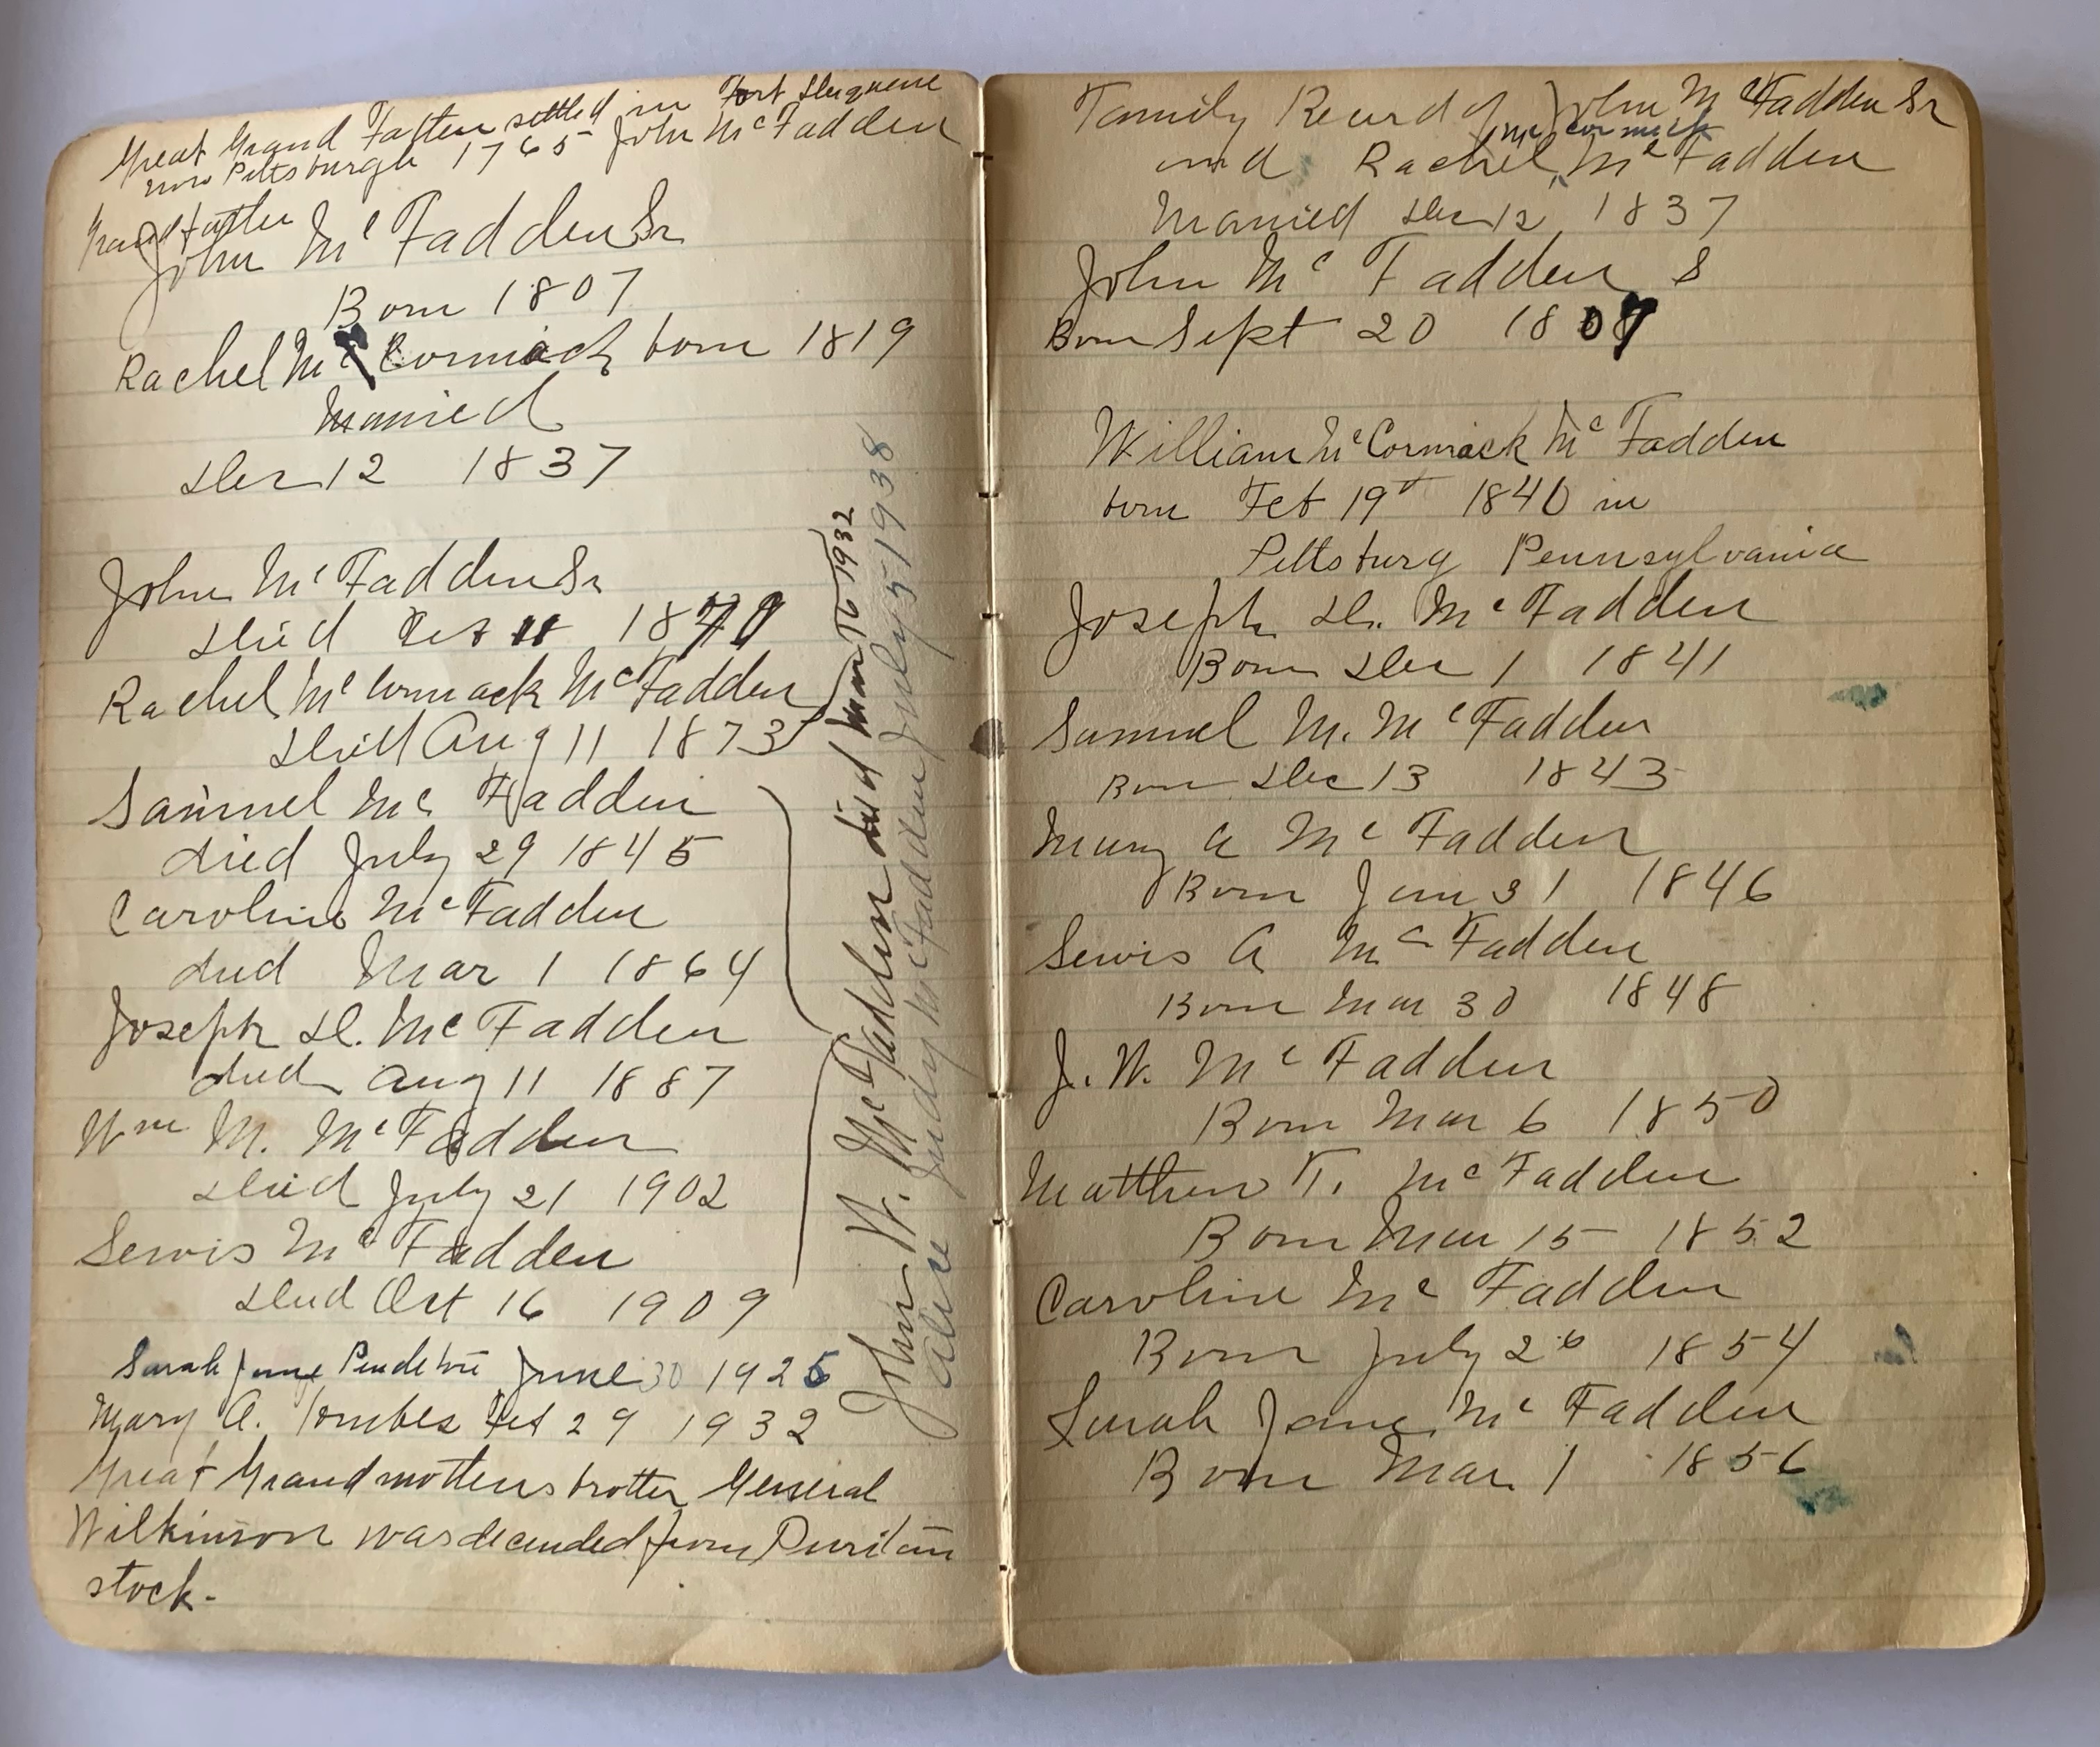 Great Grand Father settled in Fort Duquesne
now Pittsburgh 1765 John McFadden
Grandfather
John McFadden Sr
Born 1807
Rachel McCormick born 1819
Married
Dec 12 1837
John McFadden Sr
Died Oct 11 1870
Rachel McCormack McFadden
Died Aug 11 1873
Samuel Mc Fadden
died July 29 1845
Caroline McFadden
died Mar 1 1864
Joseph D. McFadden
died Aug 11 1887
Wm M. McFadden
Died July 21 1902
Lewis McFadden
Died Oct 16 1909
Sarah Jane June 30 1925
Mary A. Tombes Feb 29 1932
Great Grandmothers brother General
Wilkinson was decended from Puritan
stock.
John W. McFadden died Mar 16 1932
Alice Judy McFadden July 5 1938
Family Record of John McFadden Sr
McCormick
and Rachel McFadden
Married Dec 12 1837
John McFadden S
Born Sept 20 1807
William McCormack McFadden
born Feb 19 1840 in
Pittsburg Pennsylvania
Joseph D. McFadden
Born Dec 1 1841
Samuel M. McFadden
Born Dec 13 1843
Mary A McFadden
Born Jan 31 1846
Lewis A McFadden
Born Mar 30 1848
J. W. McFadden
Born Mar 6 1850
Matthew T. McFadden
Born Mar 15 1852
Caroline McFadden
Born July 26 1854
Sarah Jane McFadden
Born Mar 1 1856